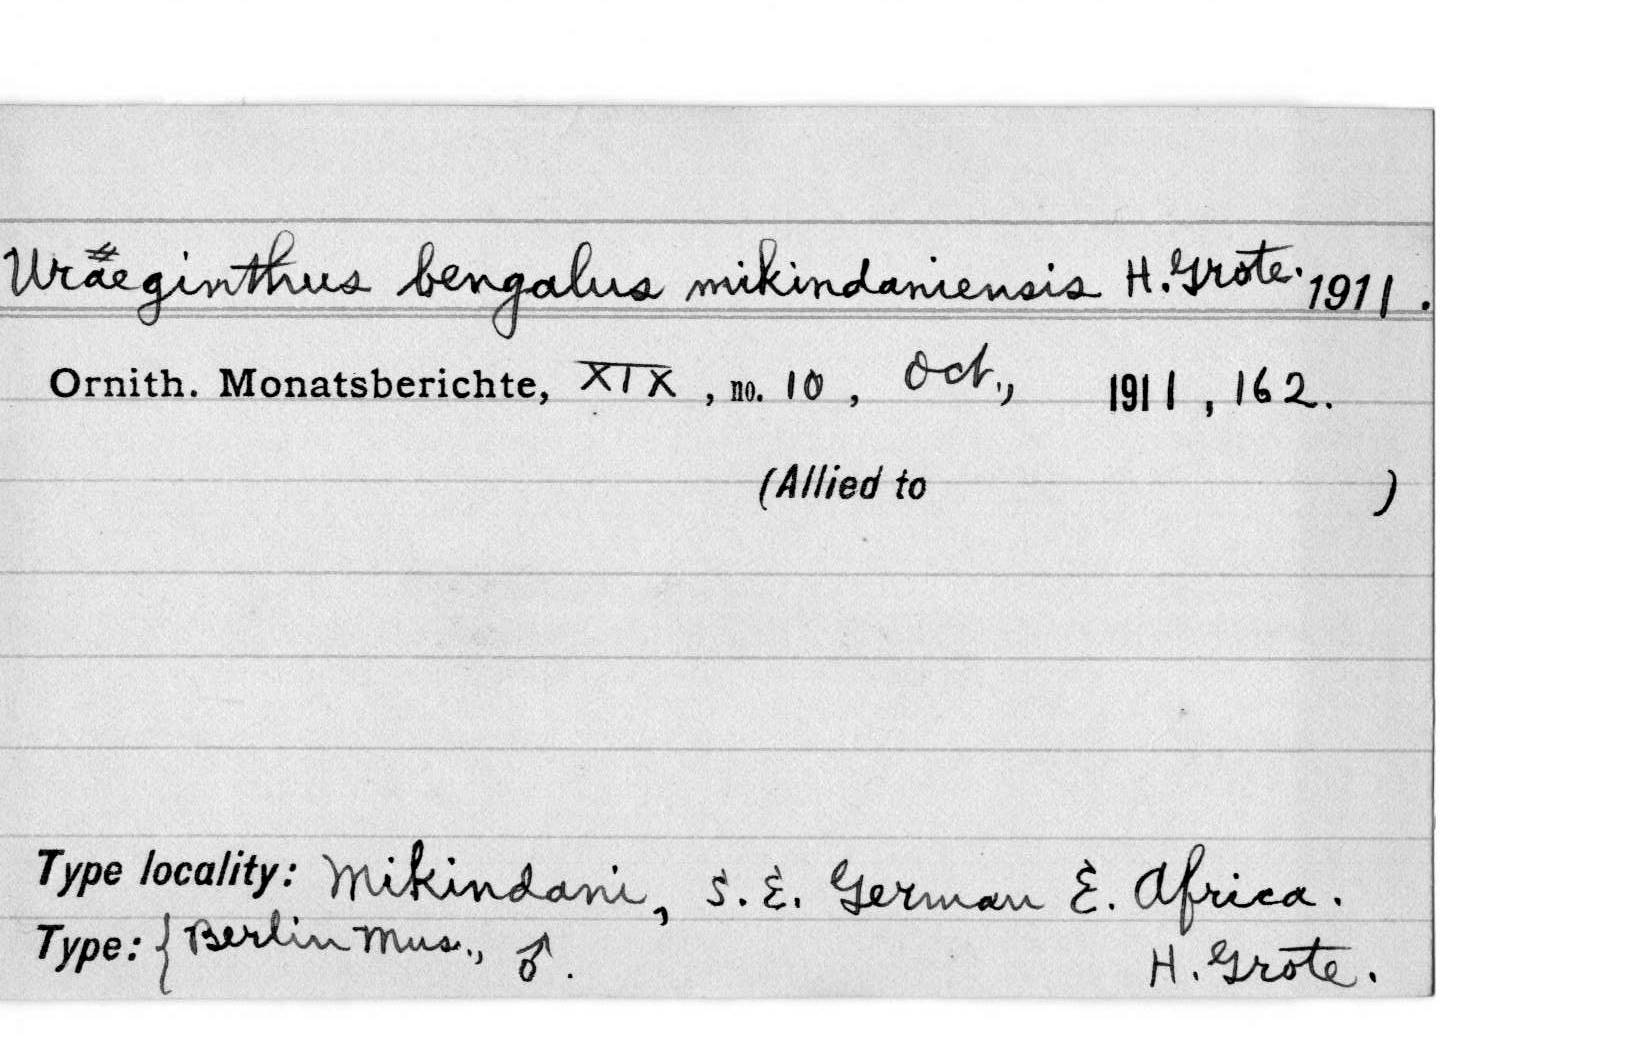 Uraeginthus bengalus mikindaniensis H. Grote. 1911.
Ornith. Monatsberichte, XIX, no. 10, Oct., 1911, 162.
(Allied to )
Type locality: Mikindani, S. E. German E. Africa.
Type: { Berlin Mus., ♂. H. Grote.